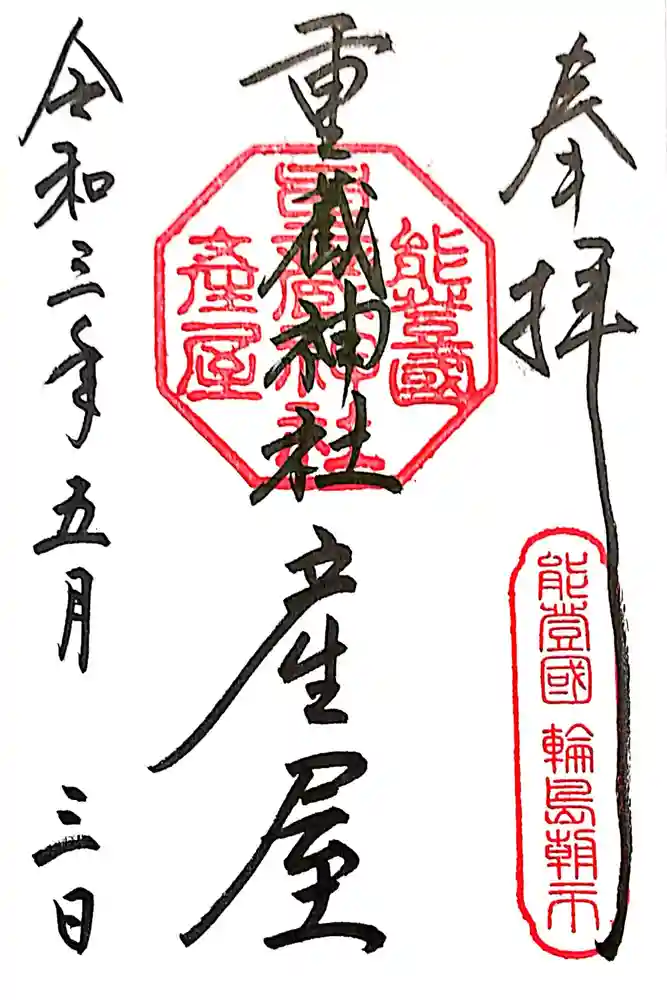 奉拝
能登國 輪島朝市
重蔵神社 産屋
能登國
重蔵神社
産屋
令和三年五月 三日